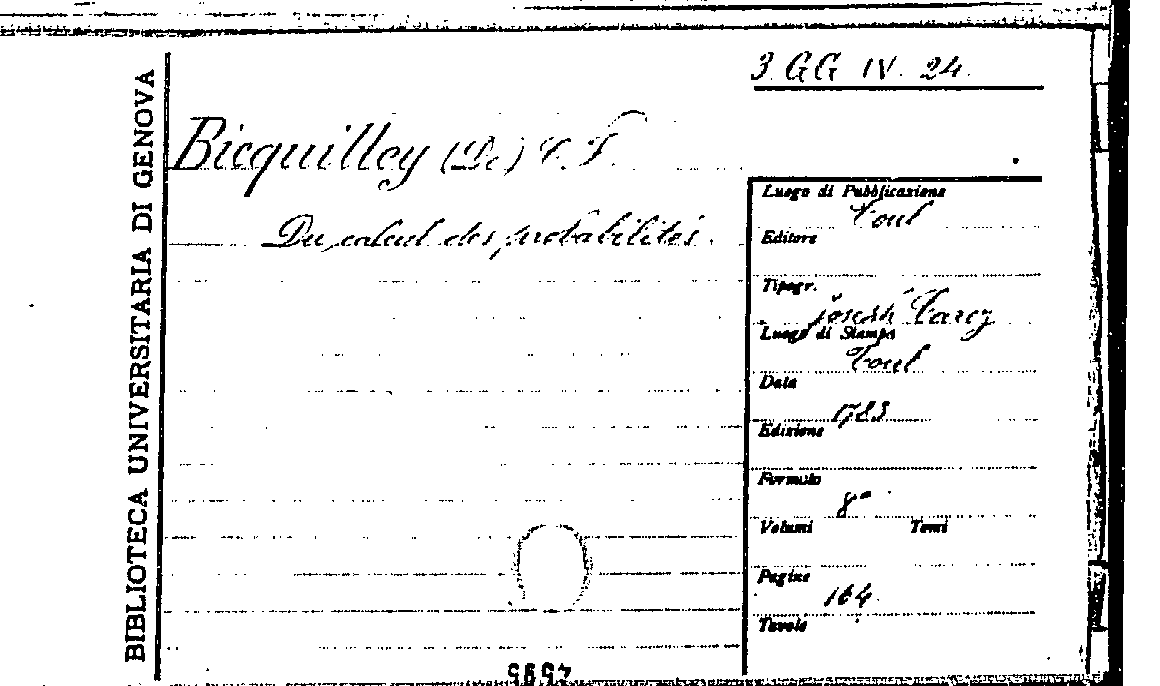 3 GG IV. 24.
BIBLIOTECA UNIVERSITARIA DI GENOVA
Bicquilley (De) C. F.
Du calcul des probabilités.
Luogo di Pubblicazione
Toul
Editore
Tipogr.
Joseph Carez
Luogo di Stampa
Toul
Data
1783
Edizione
Formato
8°
Volumi Tomi
Pagine
164
Tavole